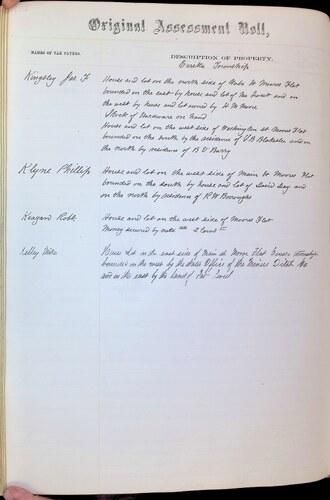 Original Assessment Roll,
NAMES OF TAX PAYERS.
DESCRIPTION OF PROPERTY.
Eureka Township
Kingsley Jas F
House and lot on the north side of Main St Moores Flat
bounded on the east by house and lot of and on
the west by house and lot owned by H M Moore
Stock of Hardware on hand
House and lot on the west side of Washington st Moores Flat
bounded on the south by the residence of J B Blakeslee and on
the north by residence of B V Barry
Klyne Phillip
House and lot on the west side of Main st Moores Flat
bounded on the south by house and lot of and
on the north by residence of R W Burroughs
Keagan Robt
House and lot on the west side of Moores Flat
Money secured by note
Kelley Mike
House Lot on the east side of Main st Moores Flat Eureka Township
bounded on the west by the Office of the Miners Ditch
and on the east by the Land of